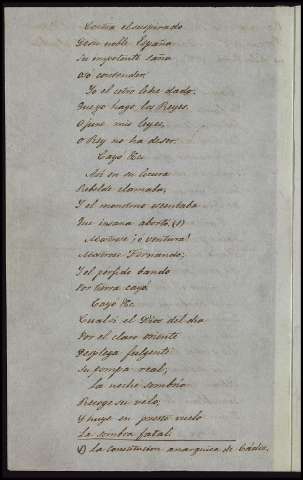 Contra el suspirado
De su noble España
Su impotente saña
Oso contender.
Yo el cetro lehe dado.
Luego hago los Reyes.
O jure mis leyes,
O Rey no ha de ser.
Cayó &c.
Asi en su locura
Rebelde clamaba,
Y el monstruo ostentaba
Que insana abortó. (1)
Mostrose ¡o ventura!
Mostrose Fernando;
Y el perfido bando
Por tierra cayó.
Cayó &c.
Cual si el Dios del dia
Por el claro oriente
Desplega fulgente
Su pompa real;
La noche sombria
Recoge su velo,
Y huye en presto vuelo
La sombra fatal.
(1) la constitucion anarquica de Cádiz.